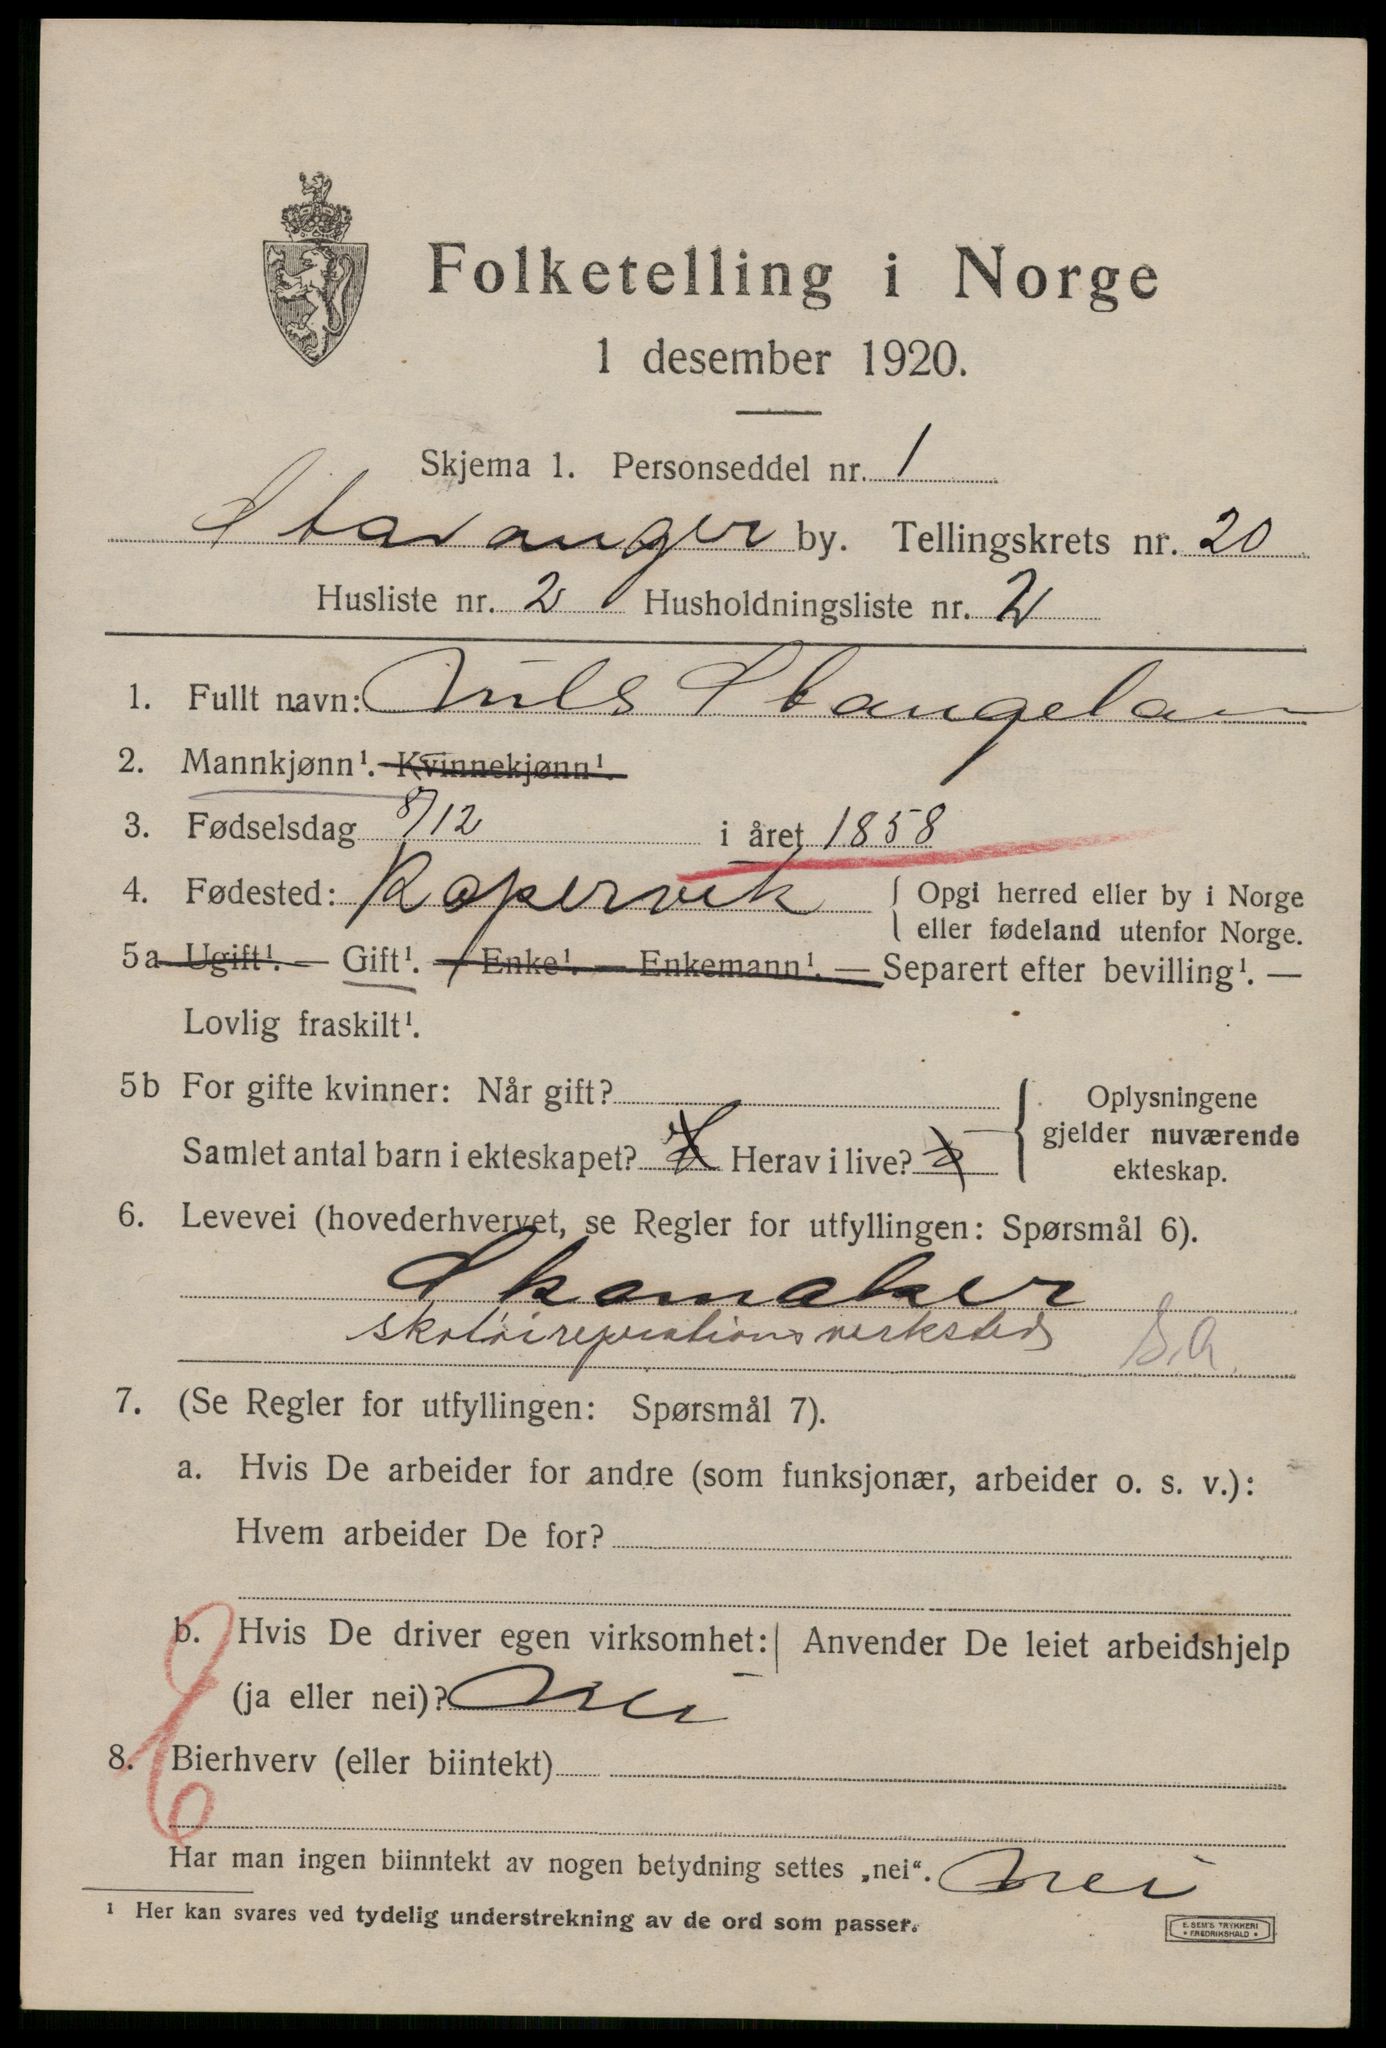 Folketelling i Norge
1 desember 1920.
Skjema 1. Personseddel nr. 1
Stavanger by. Tellingskrets nr. 20
Husliste nr. 2 Husholdningsliste nr. 2
1. Fullt navn: Nils Stangelan
2. Mannkjønn¹. Kvinnekjønn¹.
3. Fødselsdag 8/12 i året 1858
4. Fødested: Kopervik { Opgi herred eller by i Norge
eller fødeland utenfor Norge.
5a Ugift¹. — Gift¹. — Enke¹. — Enkemann¹. — Separert efter bevilling¹. —
Lovlig fraskilt¹.
5b For gifte kvinner: Når gift?
Samlet antal barn i ekteskapet? Herav i live?
Oplysningene
gjelder nuværende
ekteskap.
6. Levevei (hovederhvervet, se Regler for utfyllingen: Spørsmål 6).
Skomaker
skotøireparationsverksted S.A.
7. (Se Regler for utfyllingen: Spørsmål 7).
a. Hvis De arbeider for andre (som funksjonær, arbeider o. s. v.):
Hvem arbeider De for?
b. Hvis De driver egen virksomhet: | Anvender De leiet arbeidshjelp
(ja eller nei)? Nei
8. Bierhverv (eller biintekt)
Har man ingen biinntekt av nogen betydning settes „nei“. Nei
¹ Her kan svares ved tydelig understrekning av de ord som passer.
E. SEM'S TRYKKERI
• FREDRIKSHALD •